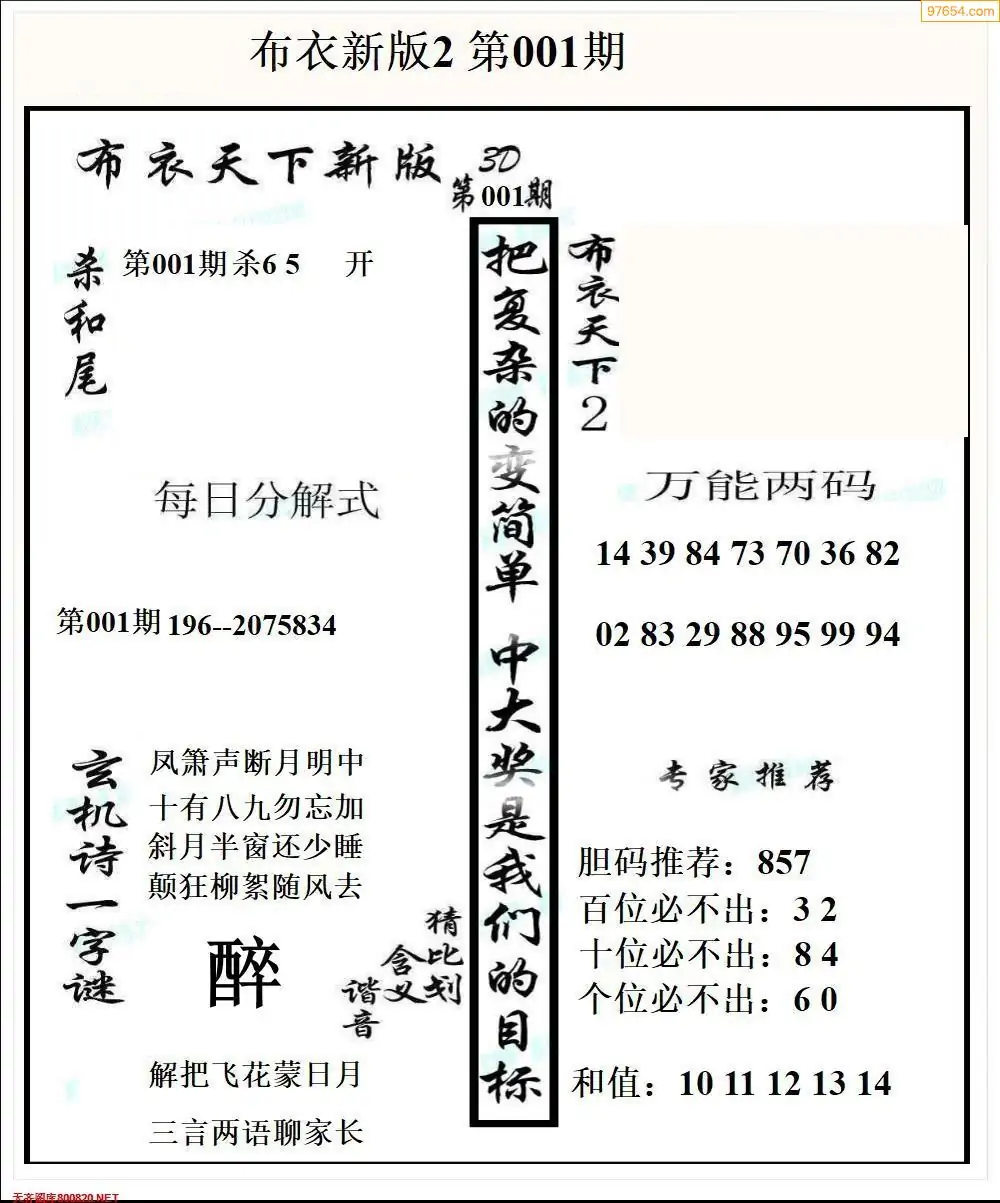 97654.com
布衣新版2 第001期
布衣天下新版
3D
第001期
杀和尾
第001期 杀6 5 开
每日分解式
第001期 196--2075834
玄机诗一字谜
凤箫声断月明中
十有八九勿忘加
斜月半窗还少睡
颠狂柳絮随风去
醉
猜比划
含义
谐音
解把飞花蒙日月
三言两语聊家长
把复杂的变简单 中大奖是我们的目标
布衣天下2
万能两码
14 39 84 73 70 36 82
02 83 29 88 95 99 94
专家推荐
胆码推荐：857
百位必不出：3 2
十位必不出：8 4
个位必不出：6 0
和值：10 11 12 13 14
天齐图库800820.NET